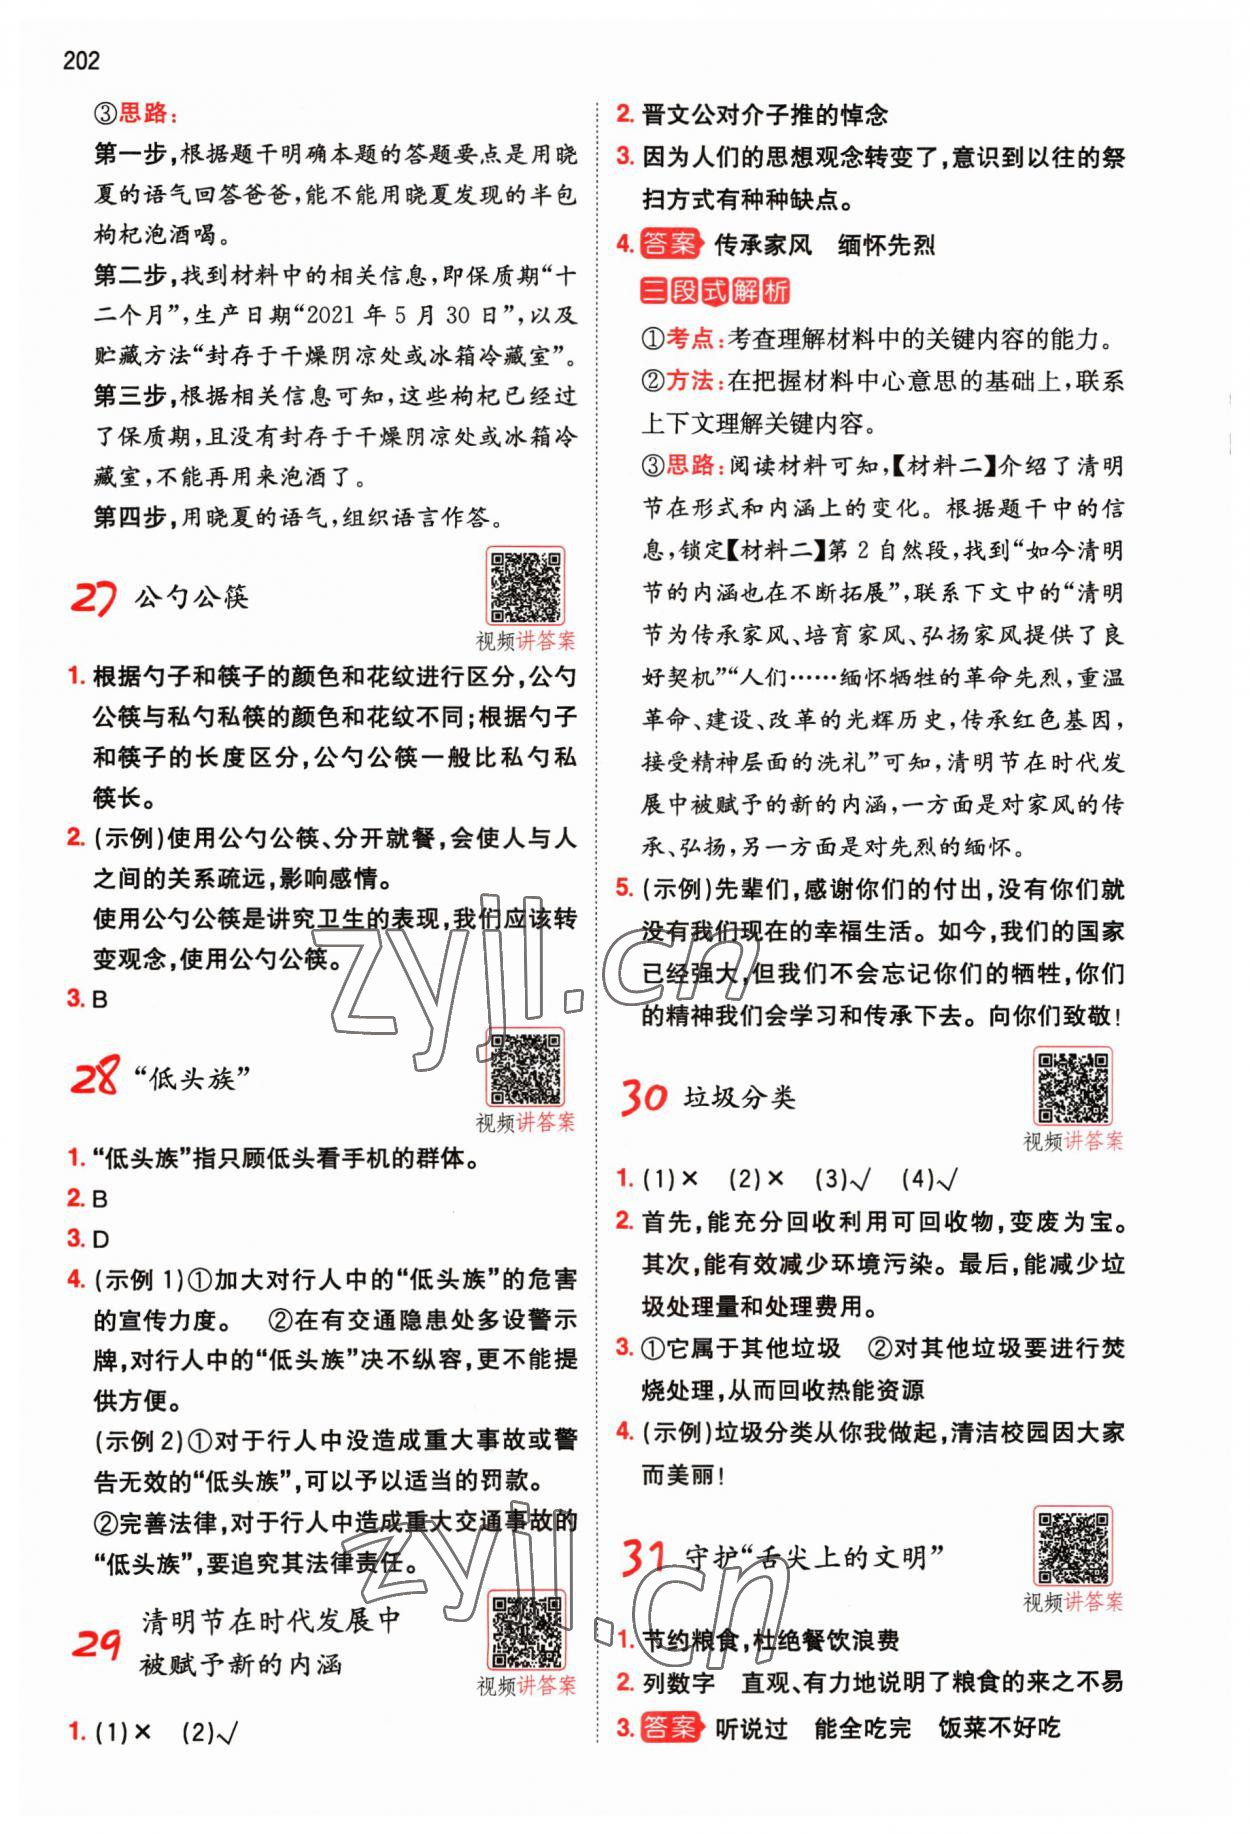 202
③思路:
第一步,根据题干明确本题的答题要点是用晓
夏的语气回答爸爸,能不能用晓夏发现的半包
枸杞泡酒喝。
第二步,找到材料中的相关信息,即保质期“十
二个月”,生产日期“2021 年 5 月 30 日”,以及
贮藏方法“封存于干燥阴凉处或冰箱冷藏室”。
第三步,根据相关信息可知,这些枸杞已经过
了保质期,且没有封存于干燥阴凉处或冰箱冷
藏室,不能再用来泡酒了。
第四步,用晓夏的语气,组织语言作答。
27 公勺公筷
视频讲答案
1. 根据勺子和筷子的颜色和花纹进行区分,公勺
公筷与私勺私筷的颜色和花纹不同;根据勺子
和筷子的长度区分,公勺公筷一般比私勺私
筷长。
2. (示例)使用公勺公筷、分开就餐,会使人与人
之间的关系疏远,影响感情。
使用公勺公筷是讲究卫生的表现,我们应该转
变观念,使用公勺公筷。
3. B
28 “低头族”
视频讲答案
1. “低头族”指只顾低头看手机的群体。
2. B
3. D
4. (示例 1)①加大对行人中的“低头族”的危害
的宣传力度。 ②在有交通隐患处多设警示
牌,对行人中的“低头族”决不纵容,更不能提
供方便。
(示例 2)①对于行人中没造成重大事故或警
告无效的“低头族”,可以予以适当的罚款。
②完善法律,对于行人中造成重大交通事故的
“低头族”,要追究其法律责任。
29 清明节在时代发展中
被赋予新的内涵
视频讲答案
1. (1)× (2)√
2. 晋文公对介子推的悼念
3. 因为人们的思想观念转变了,意识到以往的祭
扫方式有种种缺点。
4. 答案 传承家风 缅怀先烈
三段式解析
①考点:考查理解材料中的关键内容的能力。
②方法:在把握材料中心意思的基础上,联系
上下文理解关键内容。
③思路:阅读材料可知,【材料二】介绍了清明
节在形式和内涵上的变化。根据题干中的信
息,锁定【材料二】第 2 自然段,找到“如今清明
节的内涵也在不断拓展”,联系下文中的“清明
节为传承家风、培育家风、弘扬家风提供了良
好契机”“人们……缅怀牺牲的革命先烈,重温
革命、建设、改革的光辉历史,传承红色基因,
接受精神层面的洗礼”可知,清明节在时代发
展中被赋予的新的内涵,一方面是对家风的传
承、弘扬,另一方面是对先烈的缅怀。
5. (示例)先辈们,感谢你们的付出,没有你们就
没有我们现在的幸福生活。如今,我们的国家
已经强大,但我们不会忘记你们的牺牲,你们
的精神我们会学习和传承下去。向你们致敬!
30 垃圾分类
视频讲答案
1. (1)× (2)× (3)√ (4)√
2. 首先,能充分回收利用可回收物,变废为宝。
其次,能有效减少环境污染。最后,能减少垃
圾处理量和处理费用。
3. ①它属于其他垃圾 ②对其他垃圾要进行焚
烧处理,从而回收热能资源
4. (示例)垃圾分类从你我做起,清洁校园因大家
而美丽!
31 守护“舌尖上的文明”
视频讲答案
1. 节约粮食,杜绝餐饮浪费
2. 列数字 直观、有力地说明了粮食的来之不易
3. 答案 听说过 能全吃完 饭菜不好吃
zyjl.cn
zyjl.cn